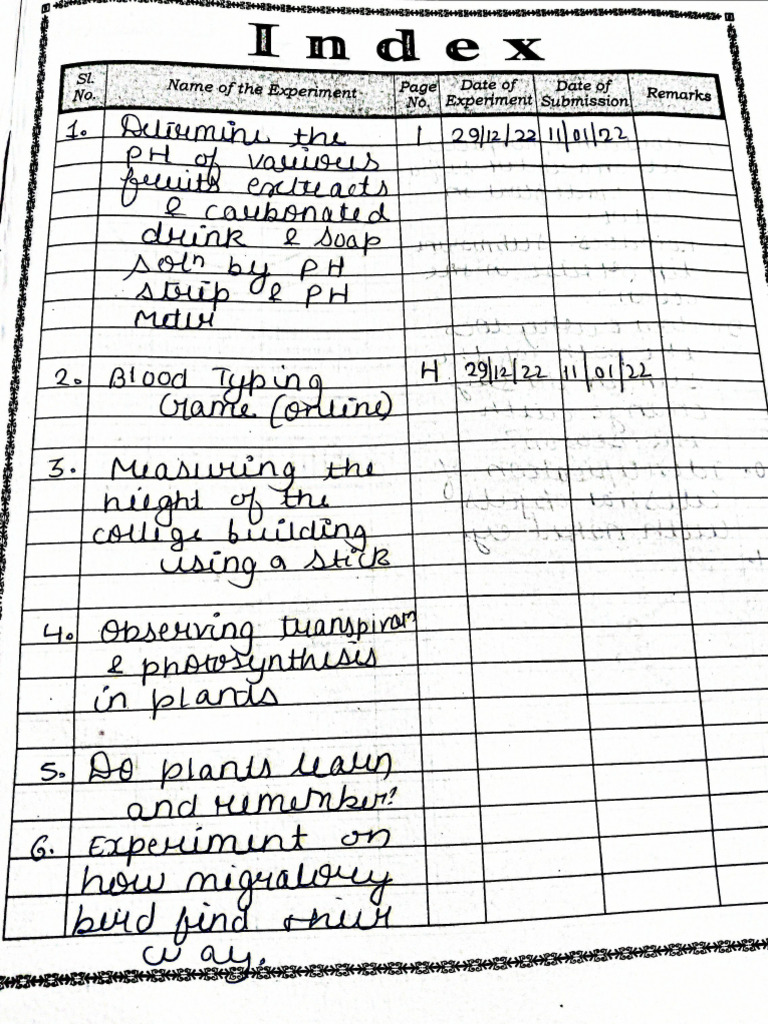 Index
Sl. No. Name of the Experiment Page No. Date of Experiment Date of Submission Remarks
1. Determine the 1 29/12/22 11/01/22
PH of various
fruits extracts
& carbonated
drink & soap
solⁿ by PH
strip & PH
meter
2. Blood Typing 4 29/12/22 11/01/22
Game (online)
3. Measuring the
height of the
college building
using a stick
4. Observing transpiraⁿ
& photosynthesis
in plants
5. Do plants learn
and remember?
6. Experiment on
how migratory
bird find their
way.